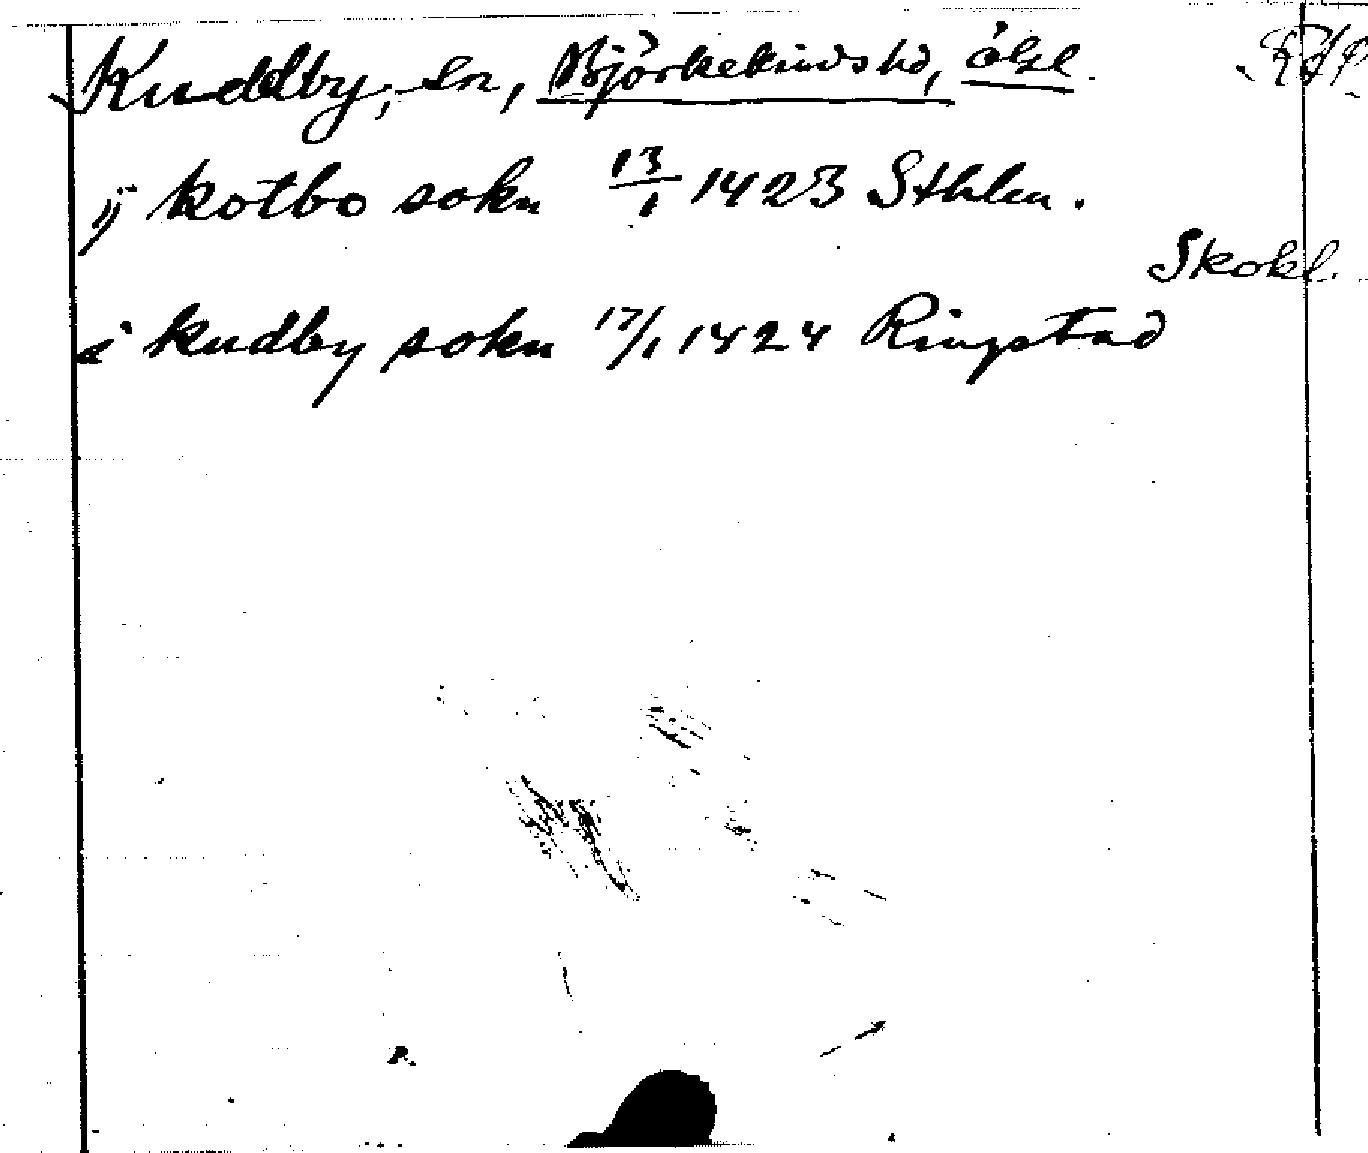 Kuddby, sn, Björkekinds hd, ögl. RAP
ij kotbo sokn 13/1 1423 Sthlm.
Skokl.
i kudby sokn 17/1 1424 Ringstad